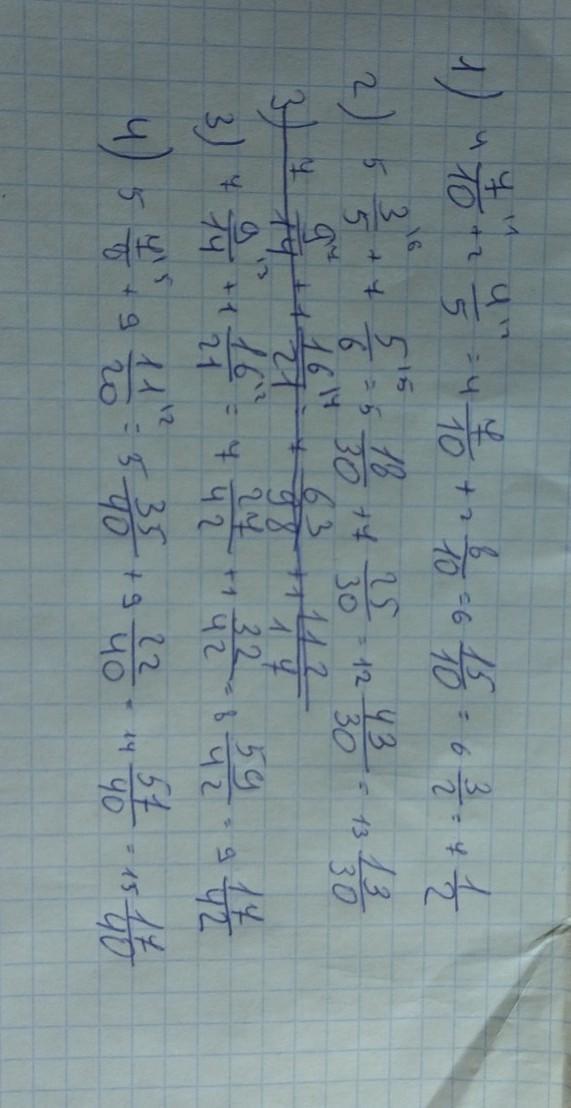 1) 4 7/10 ¹¹ + 2 4/5 ¹² = 4 7/10 + 2 8/10 = 6 15/10 = 6 3/2 = 7 1/2
2) 5 3/5 ¹⁶ + 7 5/6 ¹⁵ = 5 18/30 + 7 25/30 = 12 43/30 = 13 13/30
3) 7 9/14 + 1 16/21 = 7 63/98 + 1 112/
3) 7 9/14 + 1 16/21 ¹² = 7 27/42 + 1 32/42 = 8 59/42 = 9 17/42
4) 5 7/8 ¹⁵ + 9 11/20 ¹² = 5 35/40 + 9 22/40 = 14 57/40 = 15 17/40